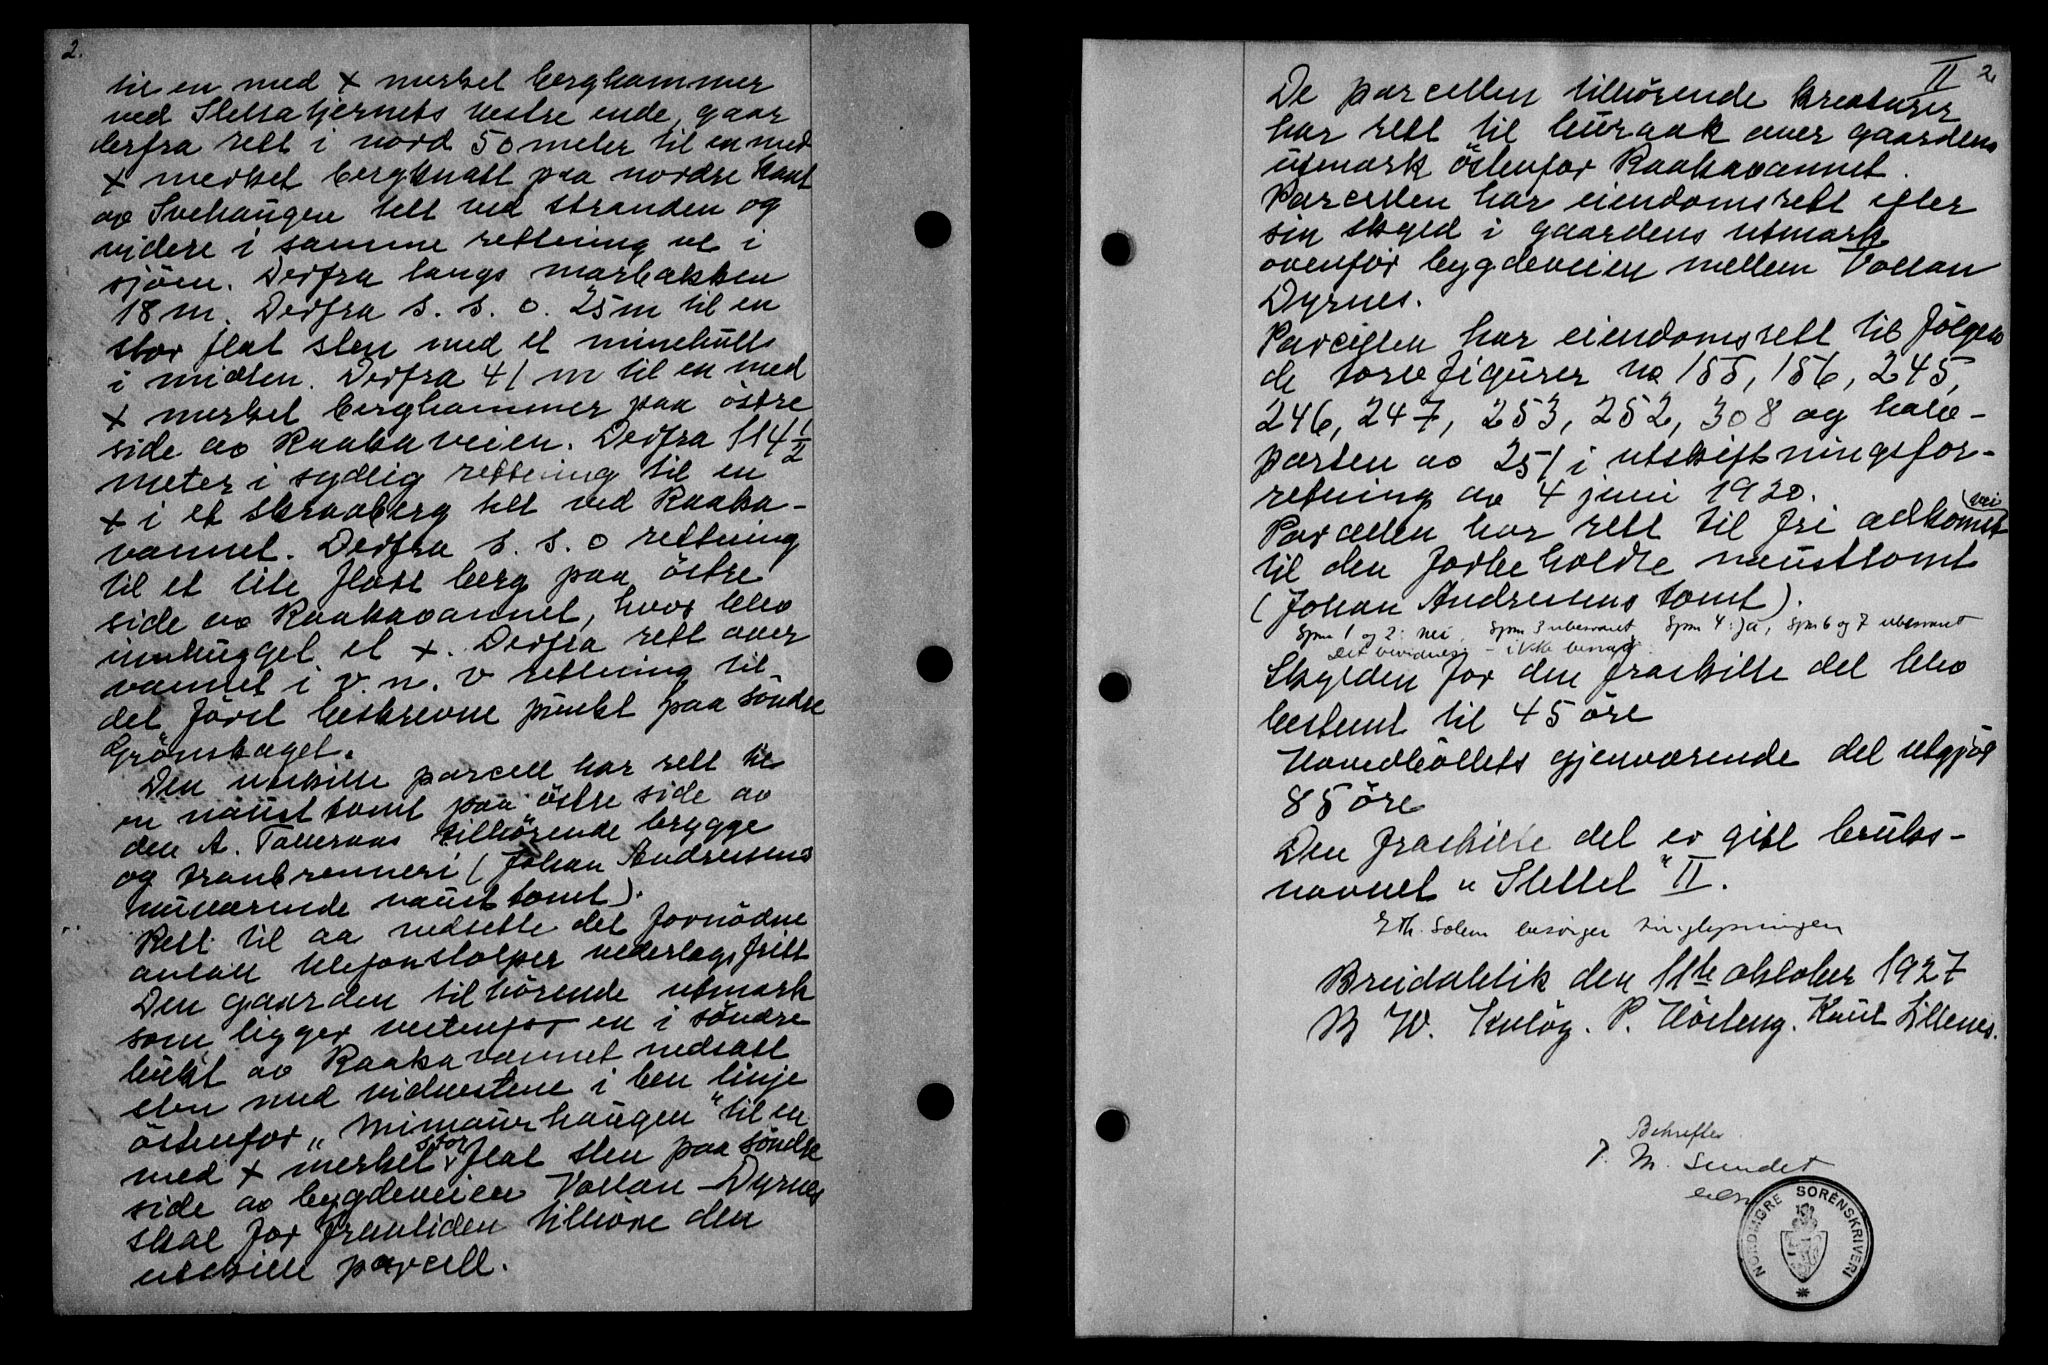 2.
til en med + merket berghammer
ved Slettatjernets vestre ende, gaar
derfra rett i nord 50 meter til en med
+ merket bergknatt paa nordre kant
av Svehaugen tett ved stranden og
videre i samme rettning ut i
sjøen. Derfra langs marbakken
18 m. Derfra s. s. o. 25 m til en
stor flat sten med et minehull
i midten. Derfra 41 m til en med
+ merket berghammer paa östre
side av Raakaveien. Derfra 114 1/2
meter i sydlig rettning til en
+ i et skraaberg tett ved Raaka-
vannet. Derfra s. s. o rettning
til et lite flatt berg paa östre
side av Raakavannet, hvor blev
innhugget et +. Derfra rett over
vannet i v. n. v rettning til
det först beskrevne punkt paa söndre
Grönskaget.
Den utskilte parcell har rett til
en nausttomt paa östre side av
den A. Talleraas tilhörende brygge
og tranbrenneri (Johan Andresens
nuværende nausttomt).
Rett til aa nedsette det fornödne
antall telefonstolper vederlagsfritt
Den gaarden tilhörende utmark
som ligger vestenfor en i söndre
bukt av Raakavannet nedsatt
sten med vidnestene i ben linje
östenfor „Mimaurhaugen" til en
med + merket stor flat sten paa söndre
side av bygdeveien Vollan - Dyrnes
skal for framtiden tilhöre den
utskilte parcell.
II 2
De parcellen tilhörende kreaturer
har rett til buraak over gaardens
utmark östenfor Raakavannet.
Parcellen har eiendomsrett efter
sin skyld i gaardens utmark
ovenfor bygdeveien mellem Vollan
Dyrnes.
Parcellen har eiendomsrett til fölgen
de torvfigurer no 155, 156, 245,
246, 247, 253, 252, 308 og halv-
parten av 251 i utskiftningsfor-
retning av 4 juni 1920.
Parcellen har rett til fri adkomst (vei)
til den forbeholdte nausttomt
(Johan Andresens tomt).
Spm 1 og 2: nei. Spm 3 ubesvaret Spm 4: Ja, Spm 6 og 7 ubesvaret
Det bevidnes - ikke besvart
Skylden for den fraskilte del blev
bestemt til 45 öre
Hovedböllets gjenværende del utgjör
85 öre
Den fraskilte del er gitt bruks-
navnet „Slettet" II.
E Th. Solem besörger tinglysningen
Breidablik den 11te oktober 1927
P. Knut Lillenes.
Bekreftes
P. M. Sundet
NORDMØRE SORENSKRIVERI